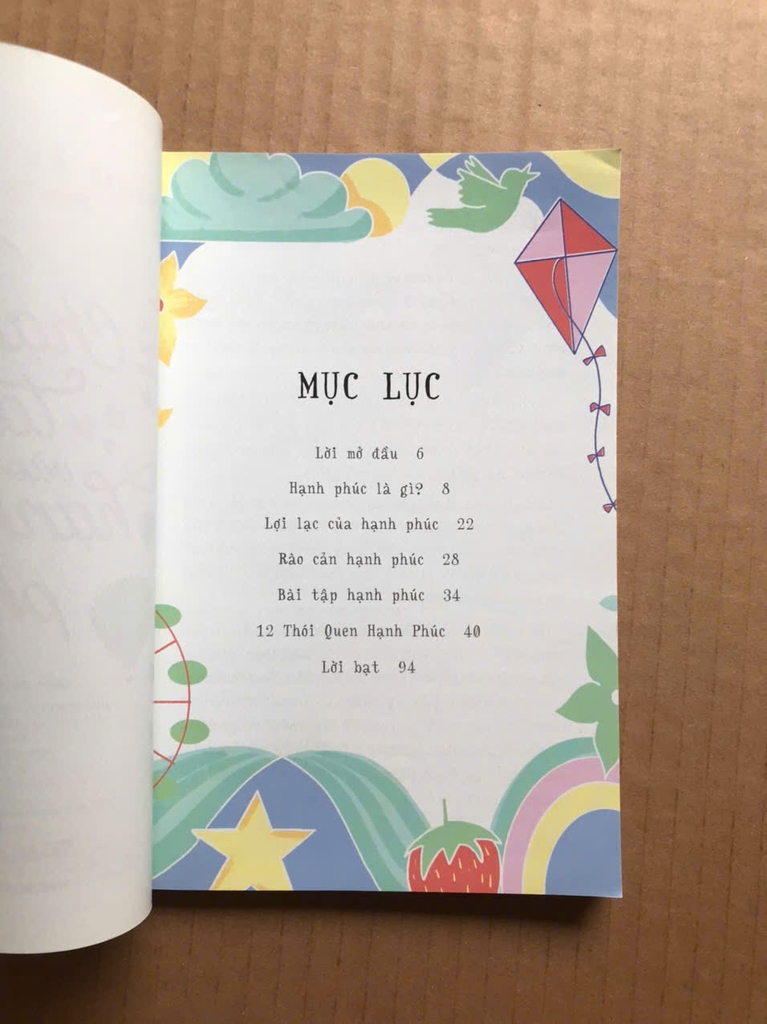 MỤC LỤC
Lời mở đầu 6
Hạnh phúc là gì? 8
Lợi lạc của hạnh phúc 22
Rào cản hạnh phúc 28
Bài tập hạnh phúc 34
12 Thói Quen Hạnh Phúc 40
Lời bạt 94